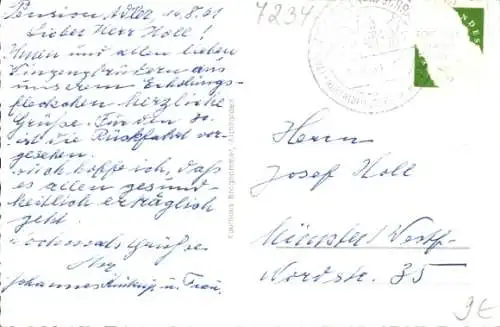 Pension Adler, 14.8.61
Lieber Herr Holl!
Ihnen und allen lieben
Vinzenzbrüdern aus
unserem Erholungs-
fleckchen herzliche
Grüße. Für den 20.
ist die Rückfahrt vor-
gesehen.
Auch hoffe ich, daß
es allen gesund-
heitlich erträglich
geht.
Nochmals Grüße
Ihr
Johannes u. Frau
7234
Herrn
Josef Holl
Münster/Westf.
Nordstr. 35
9€